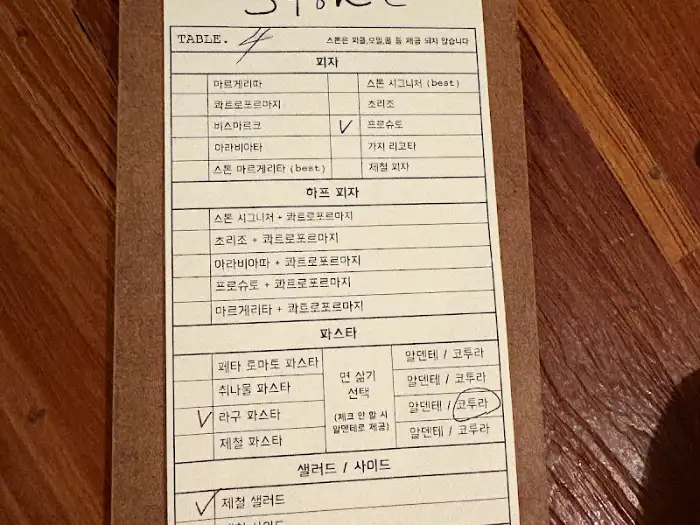 TABLE. 4 스톤은 피클,오일,꿀 등 제공 되지 않습니다
피자
마르게리따 스톤 시그니처 (best)
콰트로포르마지 초리조
비스마르크 ✓ 프로슈토
아라비아타 가지 리코타
스톤 마르게리타 (best) 제철 피자
하프 피자
스톤 시그니처 + 콰트로포르마지
초리조 + 콰트로포르마지
아라비아따 + 콰트로포르마지
프로슈토 + 콰트로포르마지
마르게리타 + 콰트로포르마지
파스타
페타 토마토 파스타 면 삶기 알덴테 / 코투라
취나물 파스타 선택 알덴테 / 코투라
✓ 라구 파스타 (체크 안 할 시 알덴테 / 코투라
제철 파스타 알덴테로 제공) 알덴테 / 코투라
샐러드 / 사이드
✓ 제철 샐러드